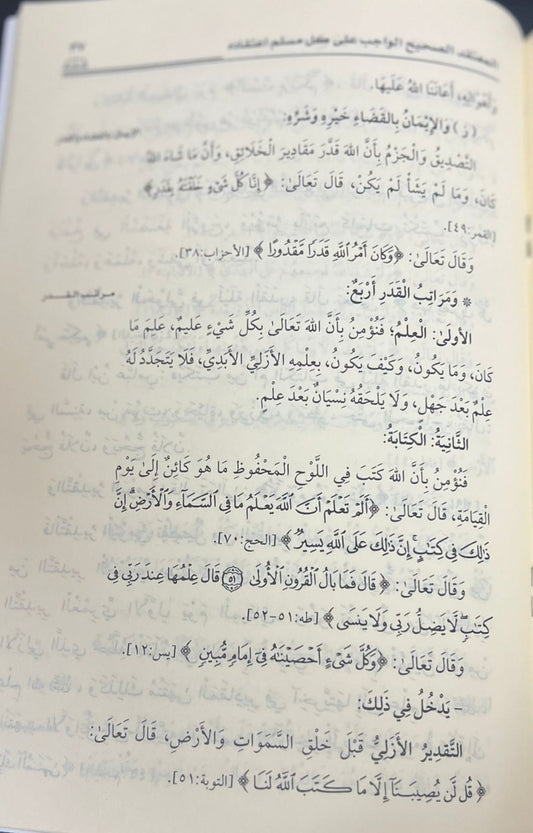 المعتقد الصحيح الواجب على كل مسلم اعتقاده
٣٧
وَأَهْوَالِهِ، أَعَانَنَا اللهُ عَلَيْهَا.
(و) وَالإِيْمَانُ بِالقَضَاءِ خَيْرِهِ وَشَرِّهِ:
التَّصْدِيقُ وَالْجَزْمُ بِأَنَّ اللهَ قَدَّرَ مَقَادِيرَ الْخَلَائِقِ، وَأَنَّ مَا شَاءَ اللهُ
كَانَ، وَمَا لَمْ يَشَأْ لَمْ يَكُنْ، قَالَ تَعَالَىٰ: ﴿إِنَّا كُلَّ شَىْءٍ خَلَقْنَٰهُ بِقَدَرٍ﴾
[القمر:٤٩].
وَقَالَ تَعَالَىٰ: ﴿وَكَانَ أَمْرُ ٱللَّهِ قَدَرًا مَّقْدُورًا﴾ [الأحزاب:٣٨].
مراتب القدر
* وَمَرَاتِبُ الْقَدَرِ أَرْبَعٌ:
الأولَىٰ: الْعِلْمُ؛ فَنُؤْمِنُ بِأَنَّ اللهَ تَعَالَىٰ بِكُلِّ شَيْءٍ عَلِيمٌ، عَلِمَ مَا
كَانَ، وَمَا يَكُونُ، وَكَيْفَ يَكُونُ، بِعِلْمِهِ الأَزَلِيِّ الأَبَدِيِّ، فَلَا يَتَجَدَّدُ لَهُ
عِلْمٌ بَعْدَ جَهْلٍ، وَلَا يَلْحَقُهُ نِسْيَانٌ بَعْدَ عِلْمٍ.
الثَّانِيَةُ: الْكِتَابَةُ:
فَنُؤْمِنُ بِأَنَّ اللهَ كَتَبَ فِي اللَّوْحِ الْمَحْفُوظِ مَا هُوَ كَائِنٌ إِلَىٰ يَوْمِ
الْقِيَامَةِ، قَالَ تَعَالَىٰ: ﴿أَلَمْ تَعْلَمْ أَنَّ ٱللَّهَ يَعْلَمُ مَا فِى ٱلسَّمَآءِ وَٱلْأَرْضِ ۗ إِنَّ
ذَٰلِكَ فِى كِتَٰبٍ ۚ إِنَّ ذَٰلِكَ عَلَى ٱللَّهِ يَسِيرٌ﴾ [الحج:٧٠].
وَقَالَ تَعَالَىٰ: ﴿قَالَ فَمَا بَالُ ٱلْقُرُونِ ٱلْأُولَىٰ ۝٥١ قَالَ عِلْمُهَا عِندَ رَبِّى فِى
كِتَٰبٍ ۖ لَّا يَضِلُّ رَبِّى وَلَا يَنسَى﴾ [طه:٥١-٥٢].
وَقَالَ تَعَالَىٰ: ﴿وَكُلَّ شَىْءٍ أَحْصَيْنَٰهُ فِىٓ إِمَامٍ مُّبِينٍ﴾ [يس:١٢].
- يَدْخُلُ فِي ذَلِكَ:
التَّقْدِيرُ الأَزَلِيُّ قَبْلَ خَلْقِ السَّمَوَاتِ وَالأَرْضِ، قَالَ تَعَالَىٰ:
﴿قُل لَّن يُصِيبَنَآ إِلَّا مَا كَتَبَ ٱللَّهُ لَنَا﴾ [التوبة:٥١].